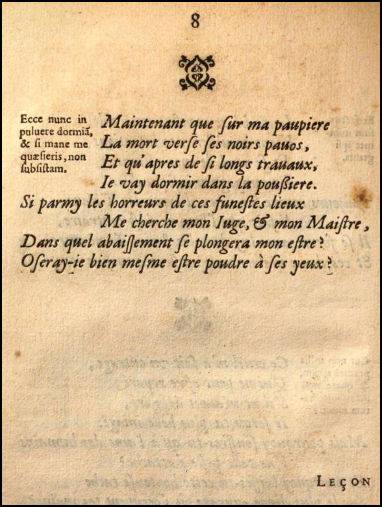 8
Ecce nunc in
puluere dormiā,
& si mane me
quæsieris, non
subsistam.
Maintenant que ſur ma paupiere
La mort verſe ſes noirs pauos,
Et qu'apres de ſi longs trauaux,
Ie vay dormir dans la pouſſiere.
Si parmy les horreurs de ces funeſtes lieux
Me cherche mon Iuge, & mon Maiſtre,
Dans quel abaiſſement ſe plongera mon eſtre?
Oſeray-ie bien meſme eſtre poudre à ſes yeux?
LEÇON